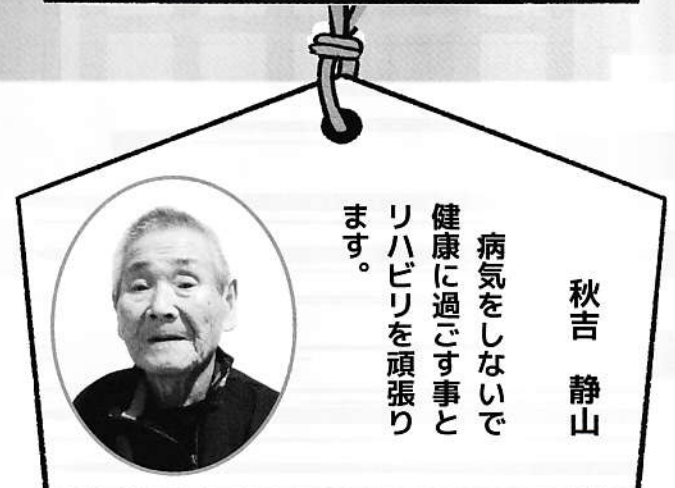 秋吉　静山
病気をしないで
健康に過ごす事と
リハビリを頑張り
ます。